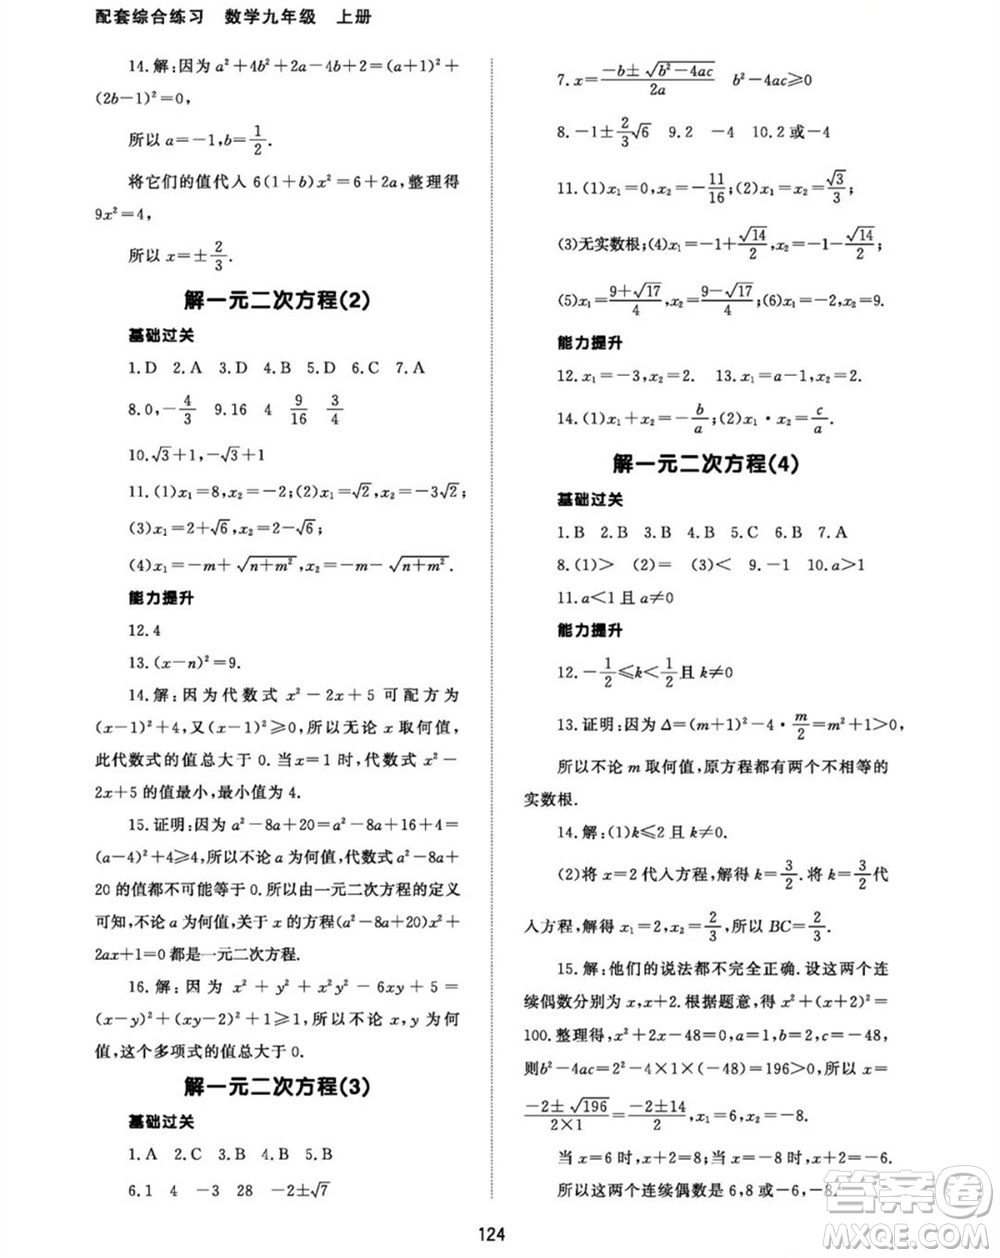 配套综合练习 数学九年级 上册
14.解:因为 a²+4b²+2a-4b+2=(a+1)²+
(2b-1)²=0,
所以 a=-1,b=1/2.
将它们的值代人 6(1+b)x²=6+2a,整理得
9x²=4,
所以 x=±2/3.
解一元二次方程(2)
基础过关
1.D 2.A 3.D 4.B 5.D 6.C 7.A
8.0,-4/3 9.16 4 9/16 3/4
10.√3+1,-√3+1
11.(1)x₁=8,x₂=-2;(2)x₁=√2,x₂=-3√2;
(3)x₁=2+√6,x₂=2-√6;
(4)x₁=-m+√(n+m²),x₂=-m-√(n+m²).
能力提升
12.4
13.(x-n)²=9.
14.解:因为代数式 x²-2x+5 可配方为
(x-1)²+4,又(x-1)²≥0,所以无论 x 取何值,
此代数式的值总大于 0.当 x=1时,代数式 x²-
2x+5 的值最小,最小值为 4.
15.证明:因为 a²-8a+20=a²-8a+16+4=
(a-4)²+4≥4,所以不论 a 为何值,代数式 a²-8a+
20 的值都不可能等于 0.所以由一元二次方程的定义
可知,不论 a 为何值,关于 x 的方程(a²-8a+20)x²+
2ax+1=0 都是一元二次方程.
16.解:因为 x²+y²+x²y²-6xy+5=
(x-y)²+(xy-2)²+1>0,所以不论 x,y 取何
值,这个多项式的值总大于 0.
解一元二次方程(3)
基础过关
1.A 2.C 3.C 4.B 5.B
6.1 4 -3 28 -2±√7
7.x=(-b±√(b²-4ac))/2a b²-4ac≥0
8.-1±2/3√6 9.2 -4 10.2或-4
11.(1)x₁=0,x₂=-11/16;(2)x₁=x₂=√3/3;
(3)无实数根;(4)x₁=-1+√14/2,x₂=-1-√14/2;
(5)x₁=(9+√17)/4,x₂=(9-√17)/4;(6)x₁=2,x₂=9.
能力提升
12.x₁=-3,x₂=2. 13.x₁=-1,x₂=2.
14.(1)x₁+x₂=-b/a;(2)x₁·x₂=c/a.
解一元二次方程(4)
基础过关
1.B 2.B 3.B 4.A 5.C 6.B 7.A
8.(1)> (2)= (3)< 9.-1 10.a>1
11.a<1 且 a≠0
能力提升
12.-1/2≤k<1/2 且 k≠0
13.证明:因为 Δ=(m+1)²-4·m/2=m²+1>0,
所以不论 m 取何值,原方程都有两个不相等的
实数根.
14.解:(1)k≤2 且 k≠0.
(2)将 x=2 代人方程,解得 k=3/2.将 k=3/2代
人方程,解得 x₁=2,x₂=2/3,所以 BC=2/3.
15.解:他们的说法都不完全正确.设这两个连
续偶数分别为 x,x+2.根据题意,得 x²+(x+2)²=
100.整理得,x²+2x-48=0,a=1,b=2,c=-48,
则b²-4ac=2²-4×1×(-48)=196>0,所以x=
(-2±√196)/(2×1)=(-2±14)/2,x₁=6,x₂=-8.
当 x=6时,x+2=8;当x=-8时,x+2=-6.
所以这两个连续偶数为 6,8 或-6,-8.
124
答案圈
MXQE.COM